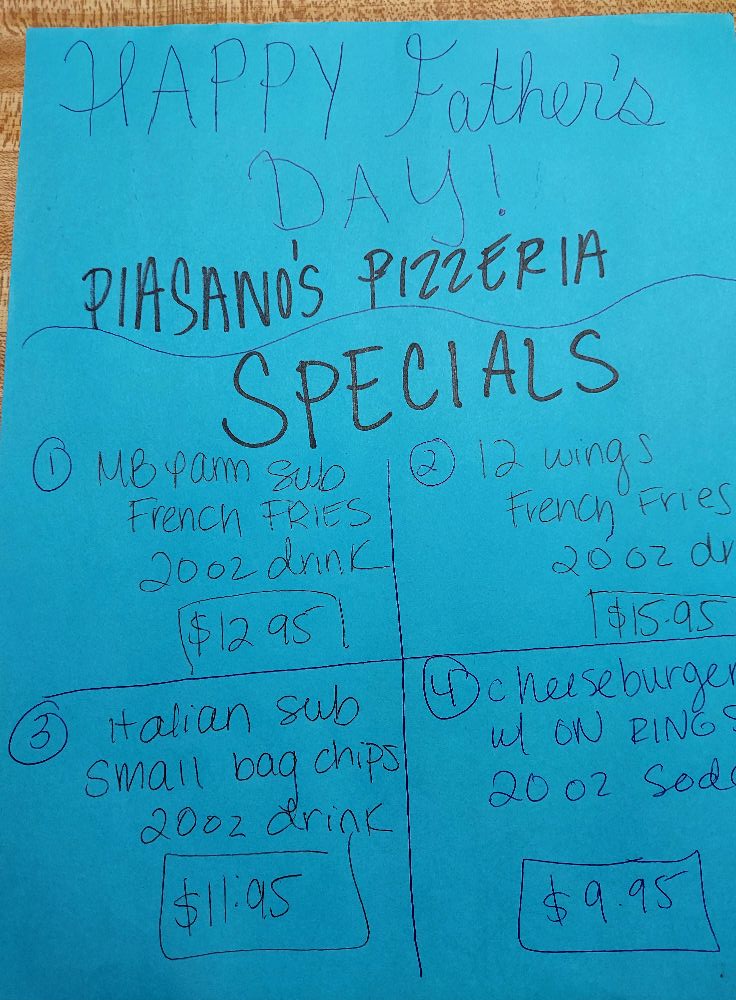 HAPPY Father's
DAY!
PIASANO'S PIZZERIA
SPECIALS
1 MB parm sub
French FRIES
20oz drink
$12.95
2 12 wings
French Fries
20oz dr
$15.95
3 Italian sub
small bag chips
20oz drink
$11.95
4 cheeseburger
w/ ON RINGS
20oz Soda
$9.95